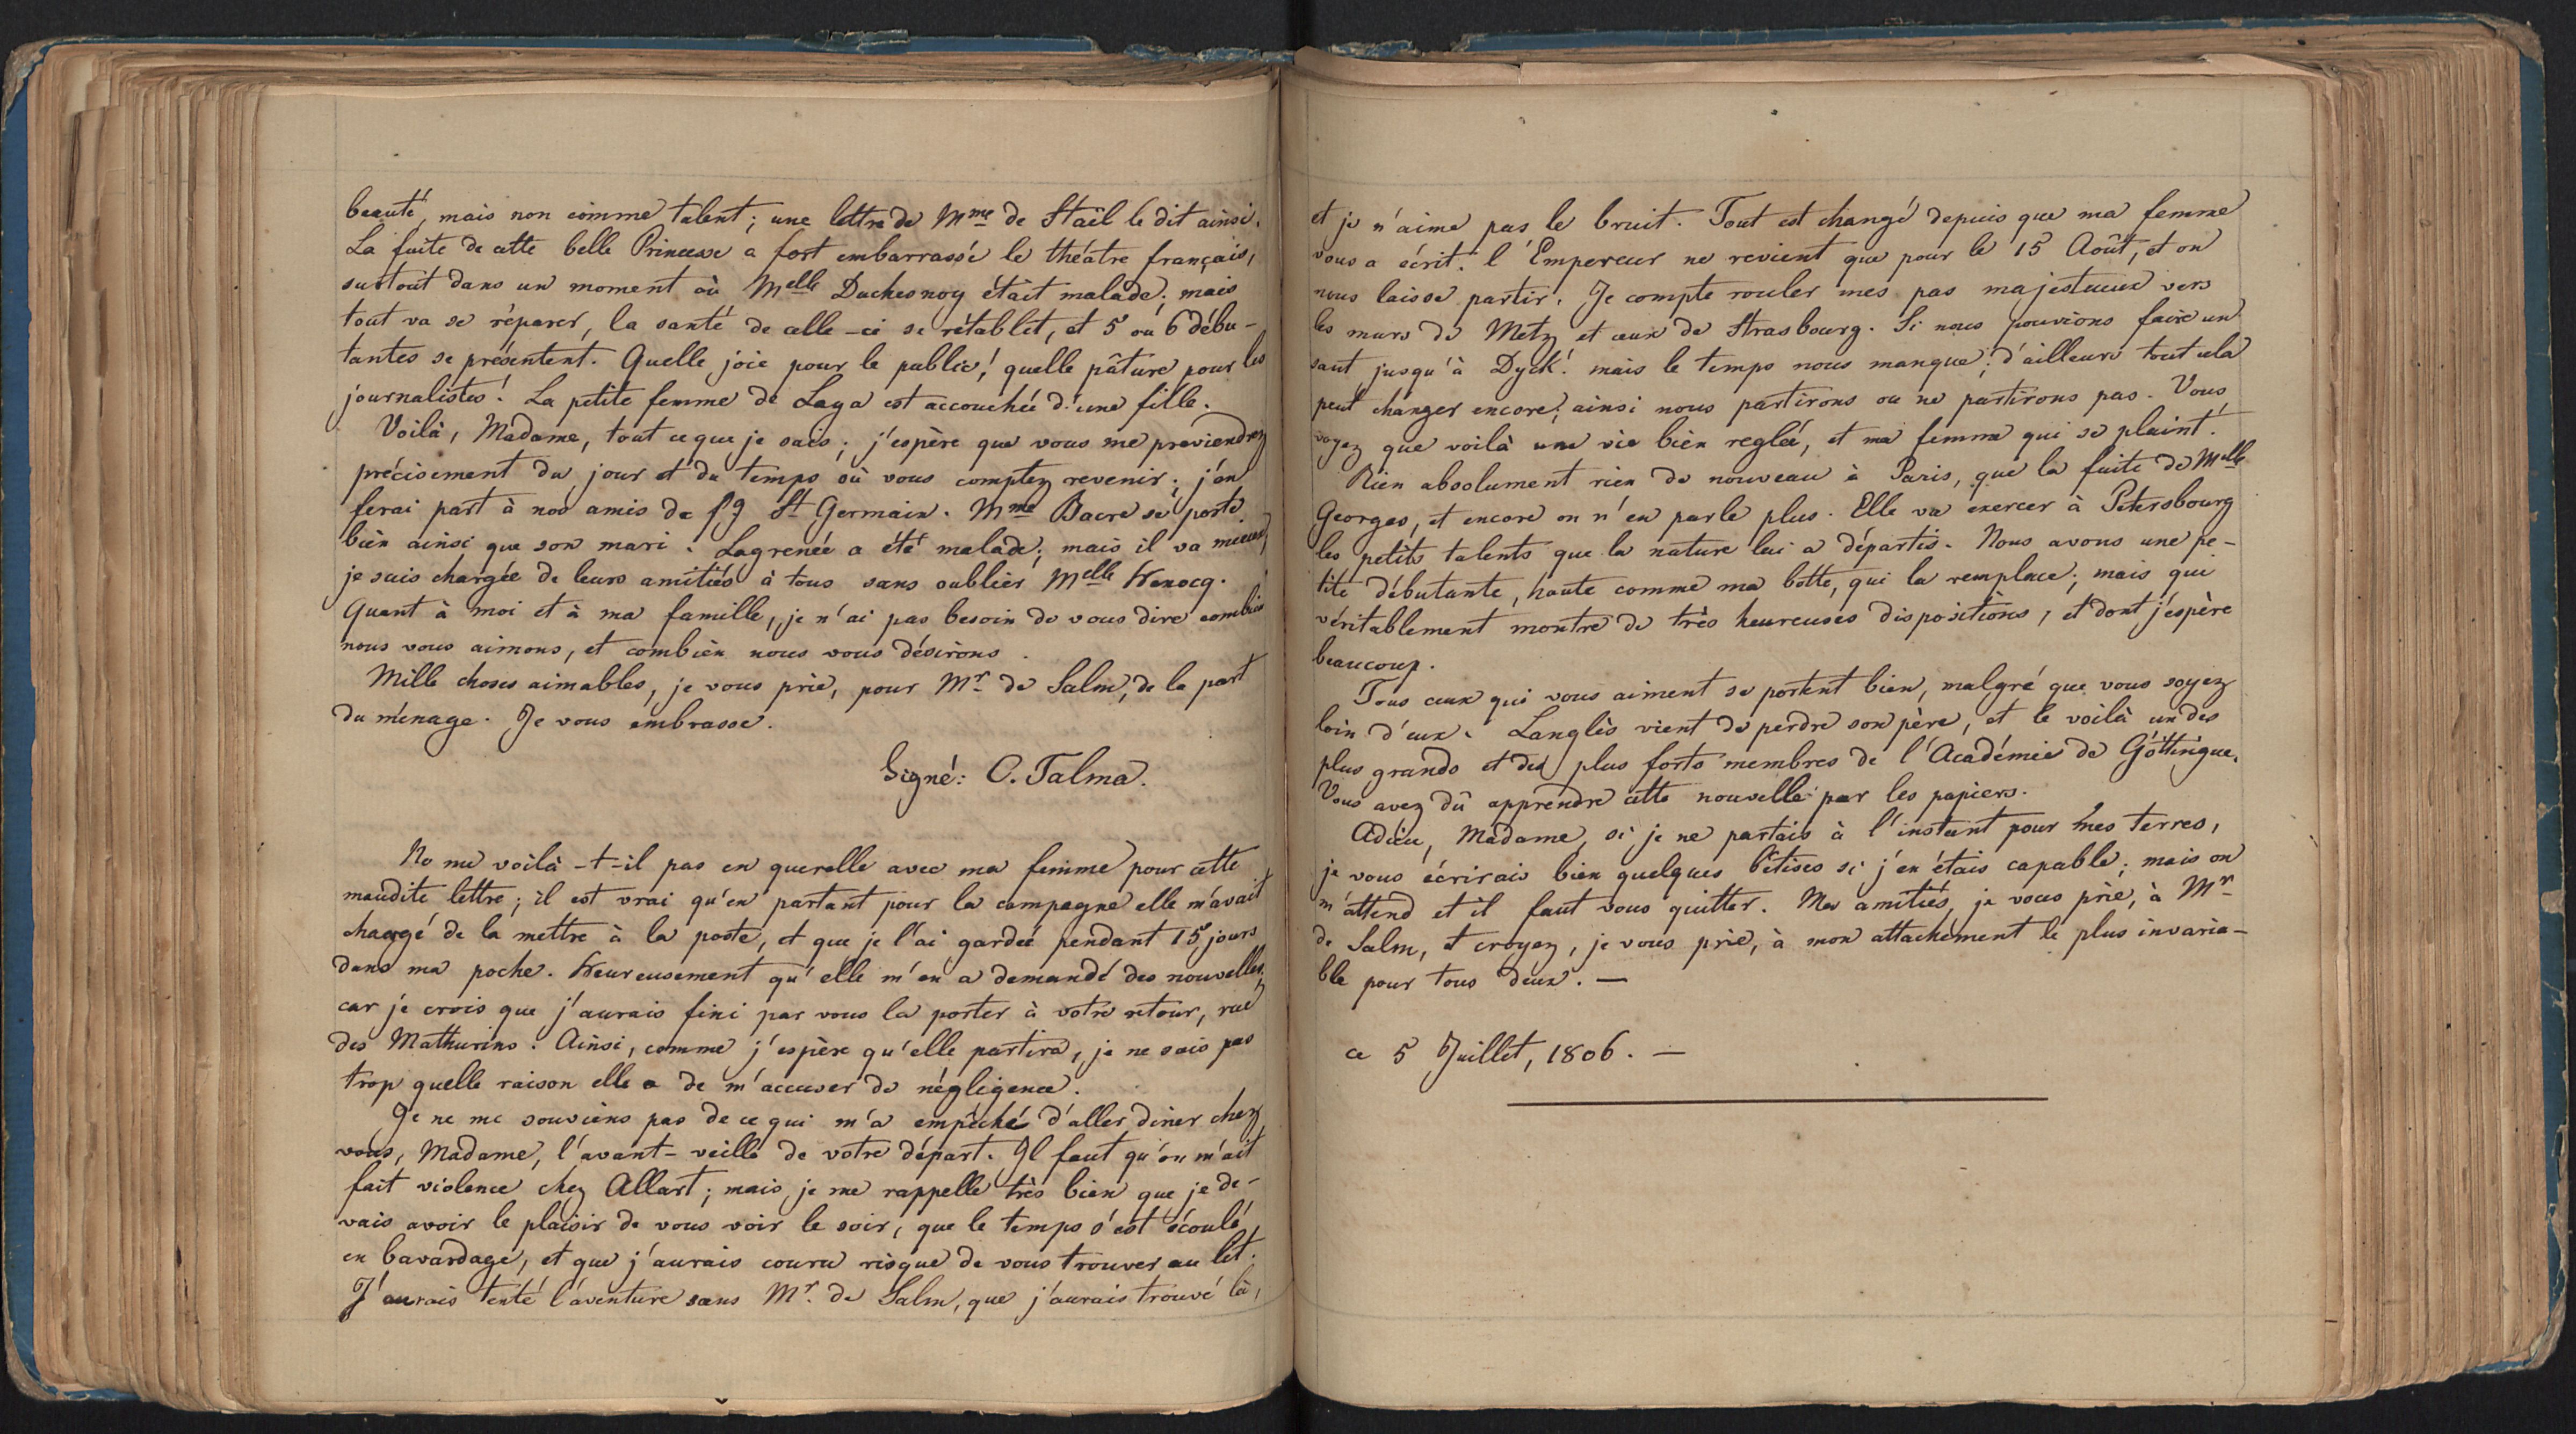 beauté, mais non comme talent; une lettre de Mme de Staël le dit ainsi.
La fuite de cette belle Princesse a fort embarrassé le théâtre français,
surtout dans un moment où Melle Duchesnoy était malade; mais
tout va se réparer, la santé de celle-ci se rétablit, et 5 ou 6 débu-
tantes se présentent. Quelle joie pour le public! quelle pâture pour les
journalistes! La petite femme de Laya est accouchée d'une fille.
Voilà, Madame, tout ce que je sais; j'espère que vous me previendrez
précisement du jour et du temps où vous comptez revenir; j'en
ferai part à nos amis du fg St Germain. Mme Bacre se porte
bien ainsi que son mari. Lagrenée a été malade; mais il va mieux,
je suis chargée de leurs amitiés à tous sans oublier Melle Henocq.
Quant à moi et à ma famille, je n'ai pas besoin de vous dire combien
nous vous aimons, et combien nous vous désirons.
Mille choses aimables, je vous prie, pour Mr de Salm, de la part
du ménage. Je vous embrasse.
Signé: C. Talma.
Ne me voilà-t-il pas en querelle avec ma femme pour cette
maudite lettre; il est vrai qu'en partant pour la campagne elle m'avait
chargé de la mettre à la poste, et que je l'ai gardée pendant 15 jours
dans ma poche. Heureusement qu'elle m'en a demandé des nouvelles,
car je crois que j'aurais fini par vous la porter à votre retour, rue
des Mathurins. Ainsi, comme j'espère qu'elle partira, je ne sais pas
trop quelle raison elle a de m'accuser de négligence.
Je ne me souviens pas de ce qui m'a empêché d'aller diner chez
vous, Madame, l'avant-veille de votre départ. Il faut qu'on m'ait
fait violence chez Allart; mais je me rappelle très bien que je de-
vais avoir le plaisir de vous voir le soir, que le temps s'est écoulé
en bavardage, et que j'aurais couru risque de vous trouver au lit.
J'aurais tenté l'aventure sans Mr. de Salm, que j'aurais trouvé là,
et je n'aime pas le bruit. Tout est changé depuis que ma femme
vous a écrit. l'Empereur ne revient que pour le 15 Août, et on
nous laisse partir. Je compte rouler mes pas majestueux vers
les murs de Metz et ceux de Strasbourg. Si nous pouvions faire un
saut jusqu'à Dyck! mais le temps nous manque; d'ailleurs tout cela
peut changer encore; ainsi nous partirons ou ne partirons pas. Vous
voyez que voilà une vie bien reglée, et ma femme qui se plaint!
Rien absolument rien de nouveau à Paris, que la fuite de Melle
Georges, et encore on n'en parle plus. Elle va exercer à Petersbourg
les petits talents que la nature lui a départis. Nous avons une pe-
tite débutante, haute comme ma botte, qui la remplace; mais qui
véritablement montre de très heureuses dispositions, et dont j'espère
beaucoup.
Tous ceux qui vous aiment se portent bien, malgré que vous soyez
loin d'eux. Langlès vient de perdre son père, et le voilà un des
plus grands et des plus forts membres de l'Académie de Göttingue.
Vous avez dû apprendre cette nouvelle par les papiers.
Adieu, Madame, si je ne partais à l'instant pour mes terres,
je vous écrirais bien quelques bêtises si j'en étais capable; mais on
m'attend et il faut vous quitter. Mes amitiés, je vous prie, à Mr
de Salm, et croyez, je vous prie, à mon attachement le plus invaria-
ble pour tous deux. —
ce 5 Juillet, 1806. —